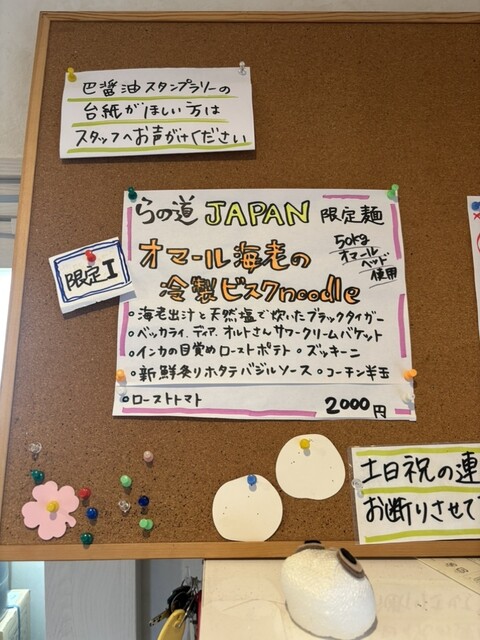 巴醤油スタンプラリーの
台紙がほしい方は
スタッフへお声がけください
らの道 JAPAN 限定麺
限定I
オマール海老の
冷製ビスクnoodle
50kg
オマール
ヘッド
使用
○海老出汁と天然塩で炊いたブラックタイガー
○ベッカライ.ディア.オルトさんサワークリームバゲット
○インカの目覚めローストポテト ○ズッキーニ
○新鮮炙りホタテバジルソース ○コーチン半玉
○ローストトマト 2000円
土日祝の連
お断りさせて